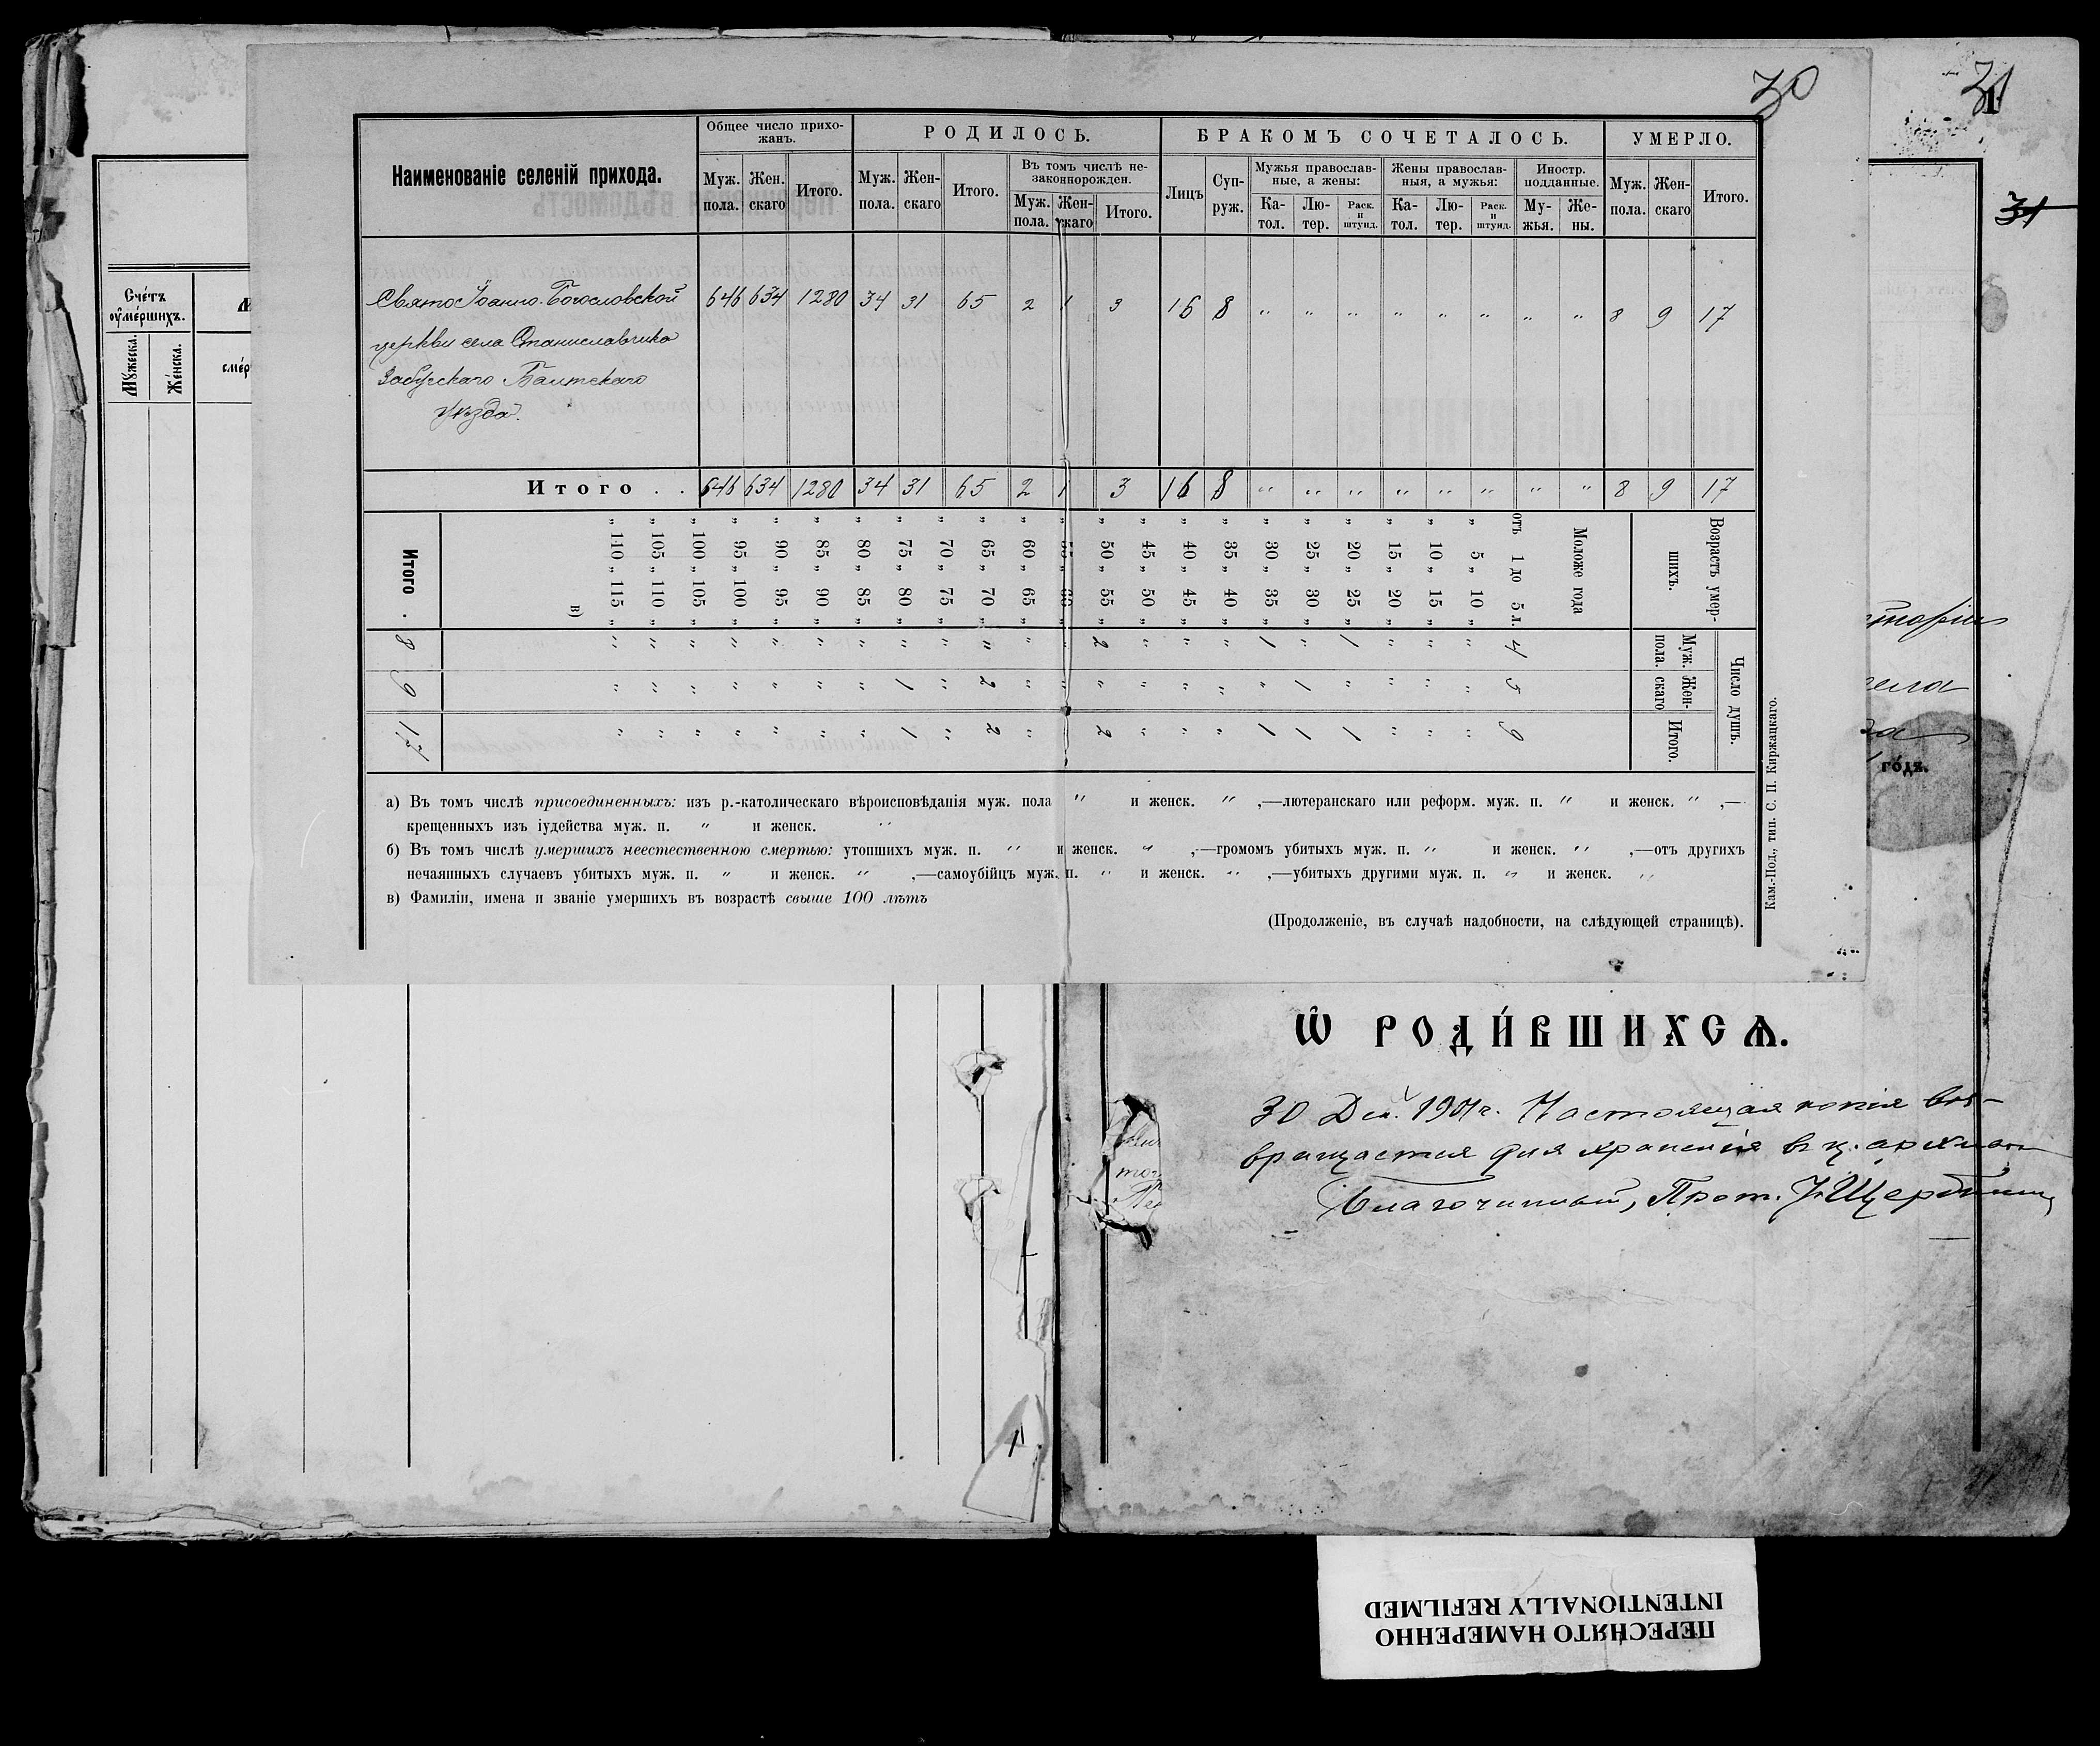 30
31
1
31
Наименованіе селеній прихода.
Общее число прихо-
жанъ.
Муж. пола.
Жен. скаго
Итого.
РОДИЛОСЬ.
Муж. пола.
Жен- скаго
Итого.
Въ томъ числѣ не-
законнорожден.
Муж. пола.
Жен- скаго
Итого.
БРАКОМЪ СОЧЕТАЛОСЬ.
Лицъ
Суп- руж.
Мужья православ-
ные, а жены:
Ка- тол.
Лю- тер.
Раск. и штунд.
Жены православ-
ныя, а мужья:
Ка- тол.
Лю- тер.
Раск. и штунд.
Иностр.
подданные.
Му- жья.
Же- ны.
УМЕРЛО.
Муж. пола.
Жен- скаго
Итого.
Свято Іоанно-Богословской 646 634 1280 34 31 65 2 1 3 16 8 „ „ „ „ „ „ „ „ 8 9 17
церкви села Станиславчика
Забугскаго Балтскаго
уѣзда.
Итого . . 646 634 1280 34 31 65 2 1 3 16 8 „ „ „ „ „ „ „ „ 8 9 17
Возрастъ умер-
шихъ.
Число душъ.
Муж. пола.
Жен- скаго
Итого.
Моложе года
отъ 1 до 5 л. 4 5 9
„ 5 „ 10 „ „ „ „
„ 10 „ 15 „ „ „ „
„ 15 „ 20 „ „ „ „
„ 20 „ 25 „ 1 „ 1
„ 25 „ 30 „ „ 1 1
„ 30 „ 35 „ 1 „ 1
„ 35 „ 40 „ „ „ „
„ 40 „ 45 „ „ „ „
„ 45 „ 50 „ „ „ „
„ 50 „ 55 „ 2 „ 2
„ 60 „ 65 „ „ „ „
„ 65 „ 70 „ „ 2 2
„ 70 „ 75 „ „ „ „
„ 75 „ 80 „ „ 1 1
„ 80 „ 85 „ „ „ „
„ 85 „ 90 „ „ „ „
„ 90 „ 95 „ „ „ „
„ 95 „ 100 „ „ „ „
„ 100 „ 105 „ „ „ „
„ 105 „ 110 „ „ „ „
„ 110 „ 115 „ „ „ „
в)
Итого . 8 9 17
а) Въ томъ числѣ присоединенныхъ: изъ р.-католическаго вѣроисповѣданія муж. пола „ и женск. „ ,—лютеранскаго или реформ. муж. п. „ и женск. „ ,—
крещенныхъ изъ іудейства муж. п. „ и женск. „
б) Въ томъ числѣ умершихъ неестественною смертью: утопшихъ муж. п. „ и женск. „ ,—громомъ убитыхъ муж. п. „ и женск. „ ,—отъ другихъ
нечаянныхъ случаевъ убитыхъ муж. п. „ и женск. „ ,—самоубійцъ муж. п. „ и женск. „ ,—убитыхъ другими муж. п. „ и женск. „
в) Фамиліи, имена и званіе умершихъ въ возрастѣ свыше 100 лѣтъ
(Продолженіе, въ случаѣ надобности, на слѣдующей страницѣ).
Кам.-Под., тип. С. П. Киржацкаго.
Сче́тъ
ѹме́ршихъ.
Мꙋ́жеска.
Же́нска.
сторіи
села
го́дъ.
Ѽ РОДИ́ВШИХСѦ.
30 Дек. 1901 г. Настоящая копія воз-
вращается для храненія въ ц. архивѣ
Благочинный, Прот.
11
ПЕРЕСНЯТО НАМЕРЕННО
INTENTIONALLY REFILMED